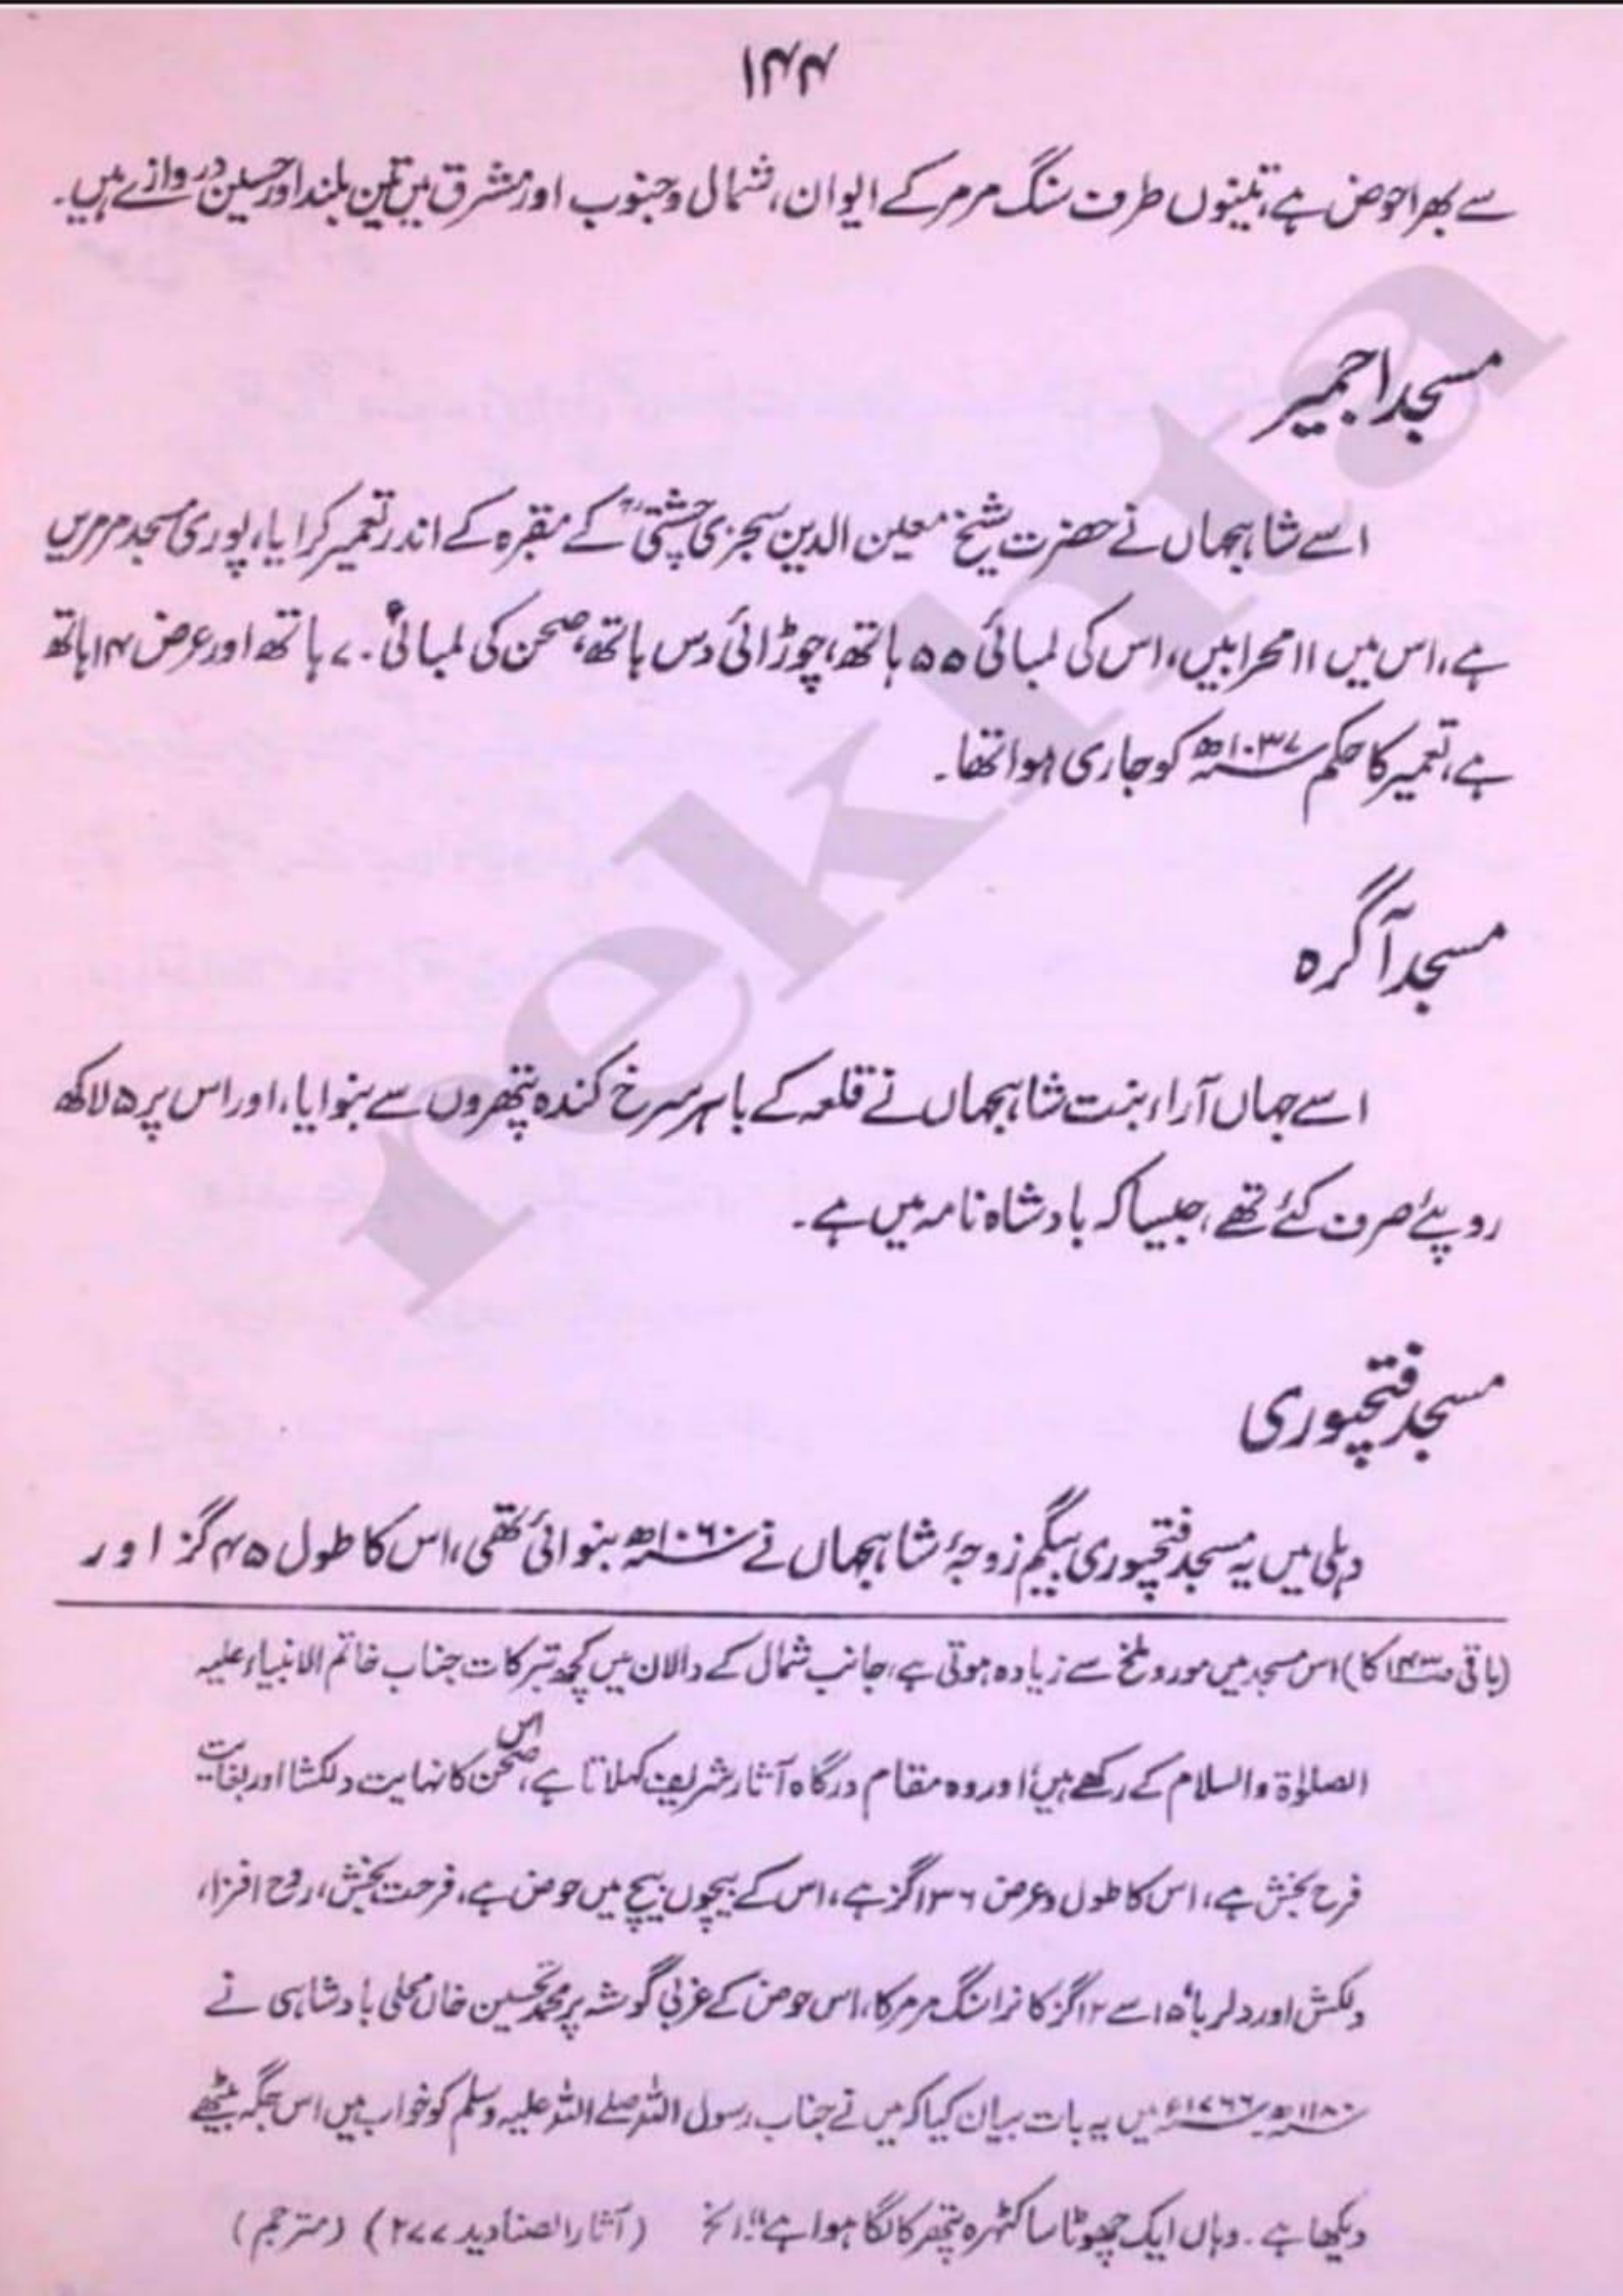 ۱۴۴
سے بھرا حوض ہے، تینوں طرف سنگ مرمر کے ایوان، شمال و جنوب اور مشرق میں تین بلند اور حسین دروازے ہیں۔
مسجد اجمیر
اسے شاہجہاں نے حضرت شیخ معین الدین سجزی چشتیؒ کے مقبرہ کے اندر تعمیر کرایا، پوری مسجد مرمریں
ہے، اس میں ۱۱ محرابیں، اس کی لمبائی ۵۵ ہاتھ، چوڑائی دس ہاتھ، صحن کی لمبائی ۷۰ ہاتھ اور عرض ۱۴ ہاتھ
ہے، تعمیر کا حکم ۱۰۳۷ھ کو جاری ہوا تھا۔
مسجد آگرہ
اسے جہاں آراء بنت شاہجہاں نے قلعہ کے باہر سرخ کندہ پتھروں سے بنوایا، اور اس پر ۵ لاکھ
روپئے صرف کئے تھے، جیسا کہ بادشاہ نامہ میں ہے۔
مسجد فتحپوری
دہلی میں یہ مسجد فتحپوری بیگم زوجۂ شاہجہاں نے ۱۰۶۰ھ بنوائی تھی، اس کا طول ۴۵ گز اور
(باقی ص۱۴۳ کا) اس مسجد میں مور و ملخ سے زیادہ ہوتی ہے، جانب شمال کے دالان میں کچھ تبرکات جناب خاتم الانبیاء علیہ
الصلوٰۃ والسلام کے رکھے ہیں، اور وہ مقام درگاہ آثار شریف کہلاتا ہے، اس صحن کا نہایت دلکشا اور بغایت
فرح بخش ہے، اس کا طول و عرض ۱۳۶ گز ہے، اس کے بیچوں بیچ میں حوض ہے، فرحت بخش، روح افزا،
دلکش اور دلربا، ۱۵ سے ۱۲ گز کا نرا سنگ مرمر کا، اس حوض کے غربی گوشہ پر محمد تحسین خاں محلی بادشاہی نے
۱۱۸۰ھ ۱۷۶۶ء میں یہ بات بیان کیا کہ میں نے جناب رسول اللہ صلے اللہ علیہ وسلم کو خواب میں اس جگہ بیٹھے
دیکھا ہے۔ وہاں ایک چھوٹا سا کٹہرہ پتھر کا لگا ہوا ہے" الخ (آثار الصنادید ۲۷۷) (مترجم)
rekhta